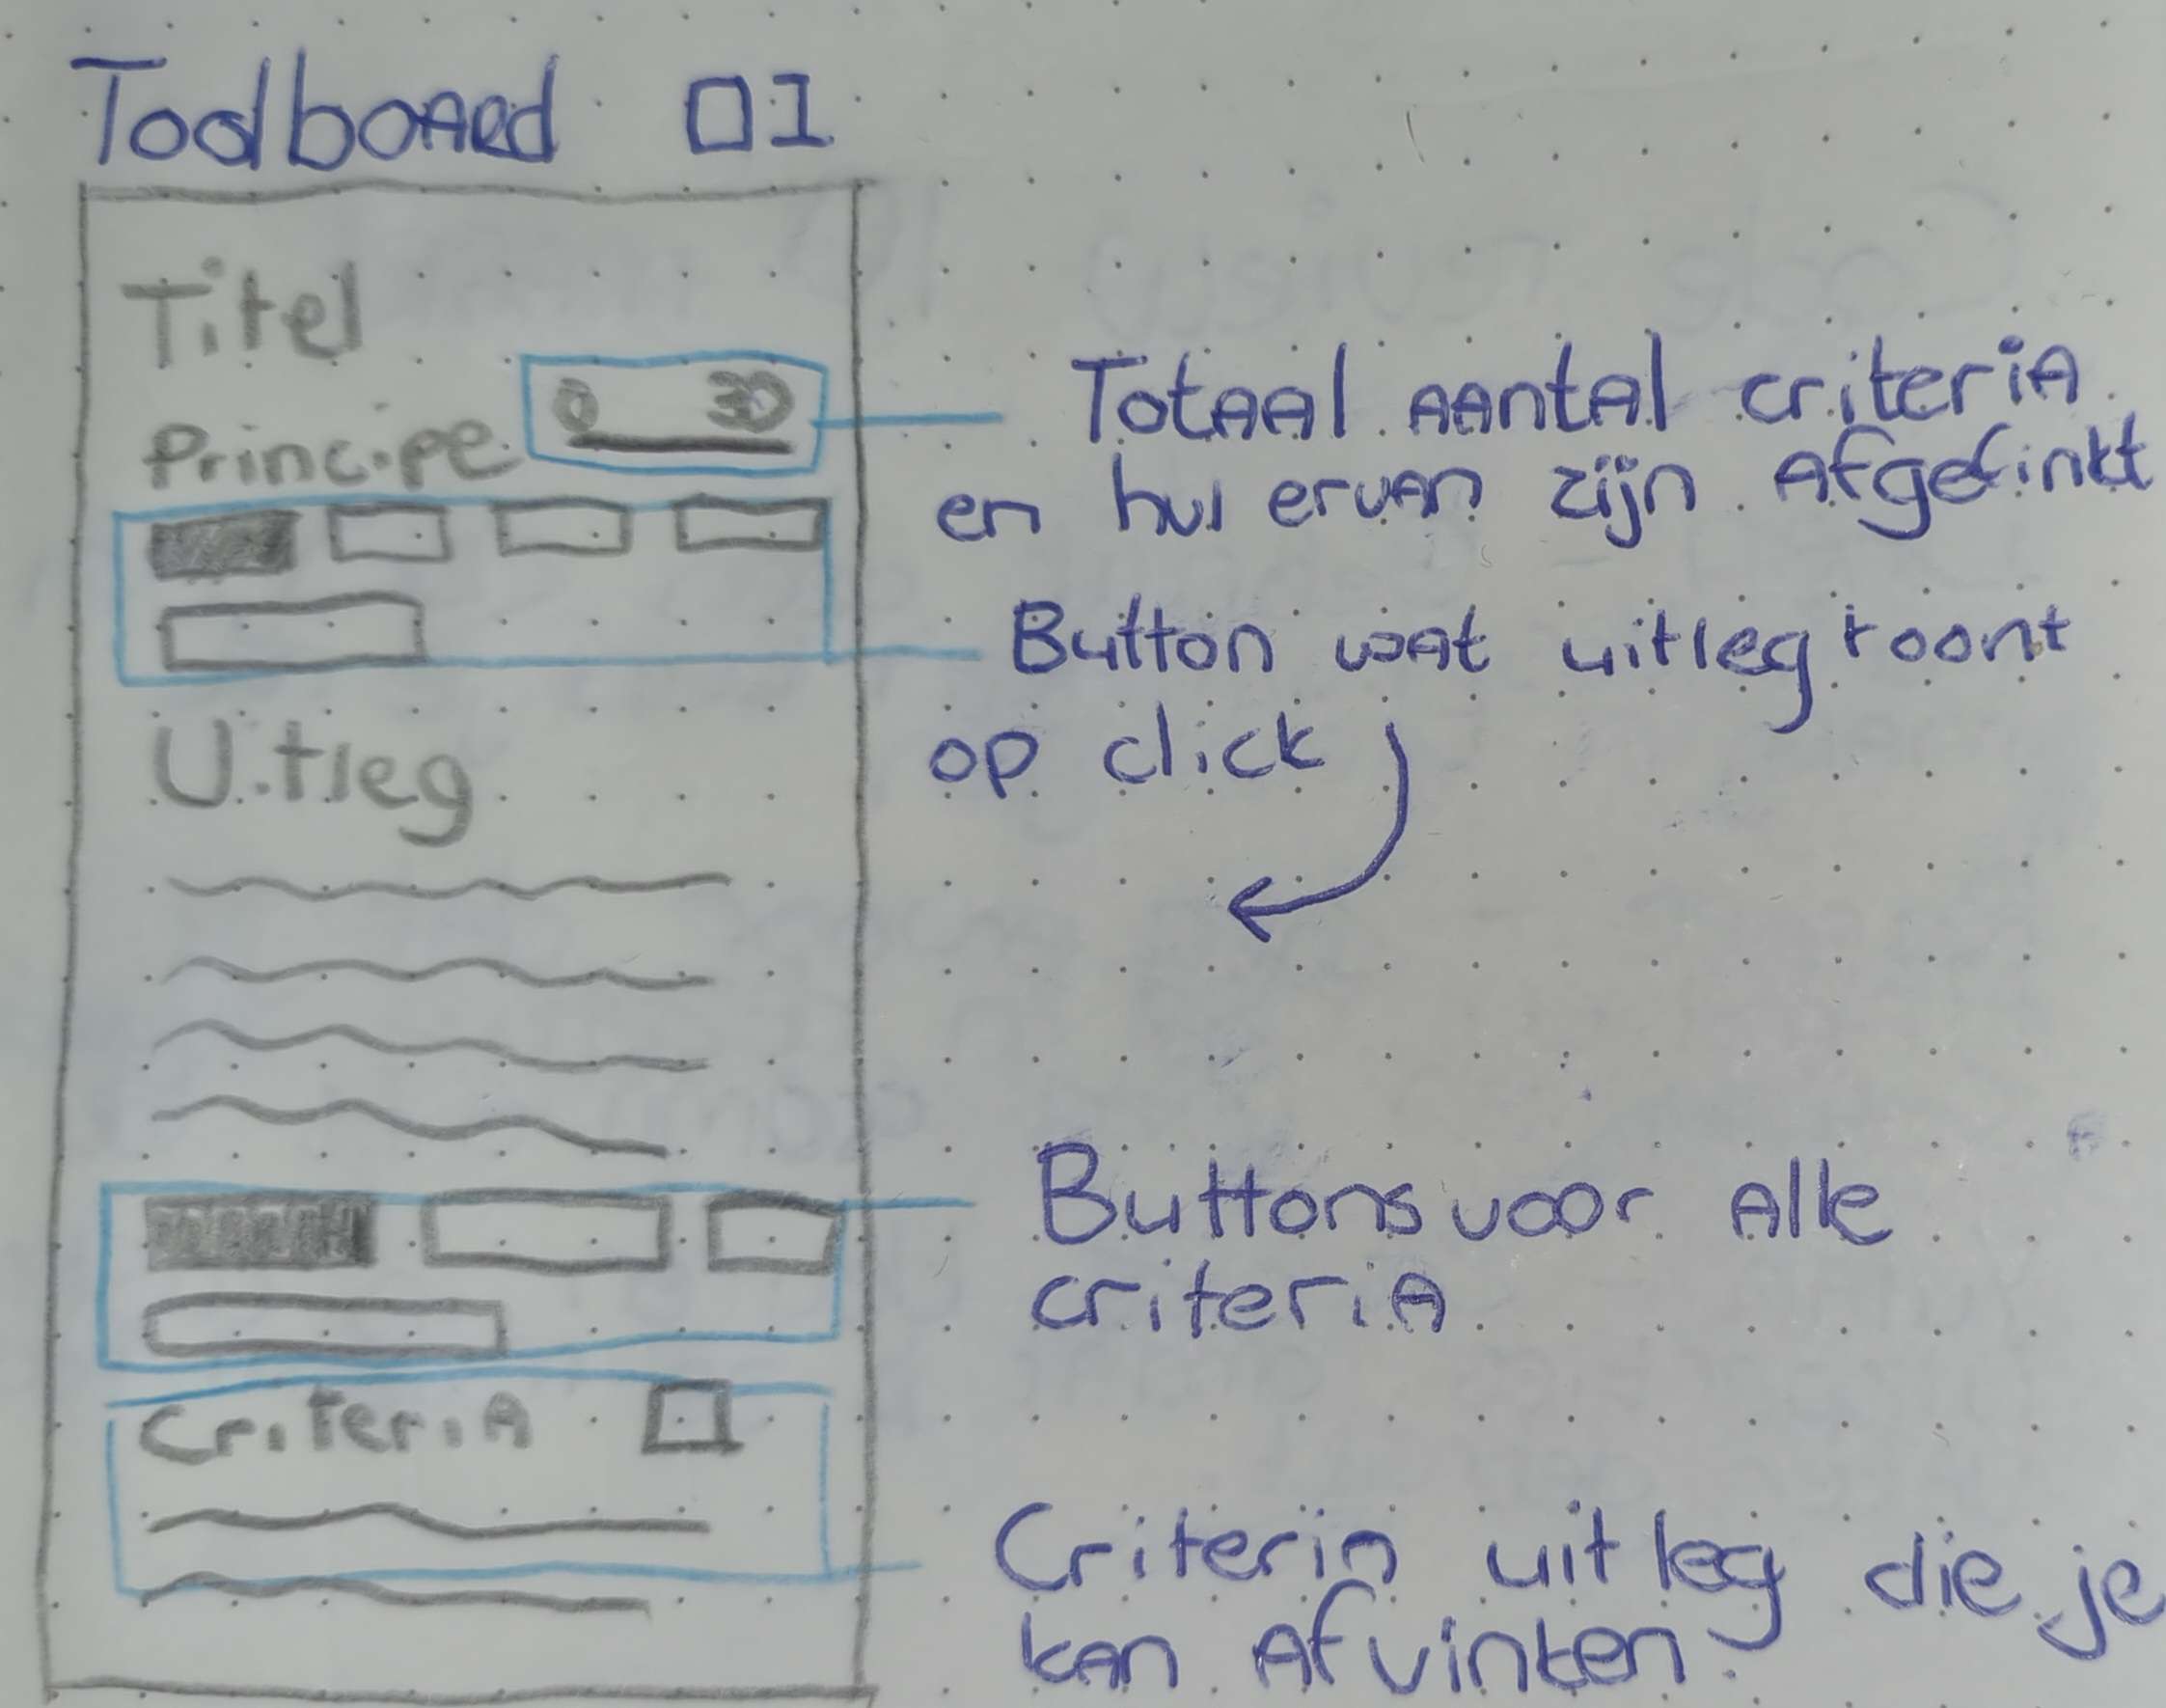 Toolboard 01
Titel
0 30
Principe
Totaal aantal criteria
en hui ervan zijn Afgefinkt
Button wat uitleg toont
op click
Uitleg
Buttons voor Alle
criteria
Criteria
Criteria uitleg die je
kan Afvinken